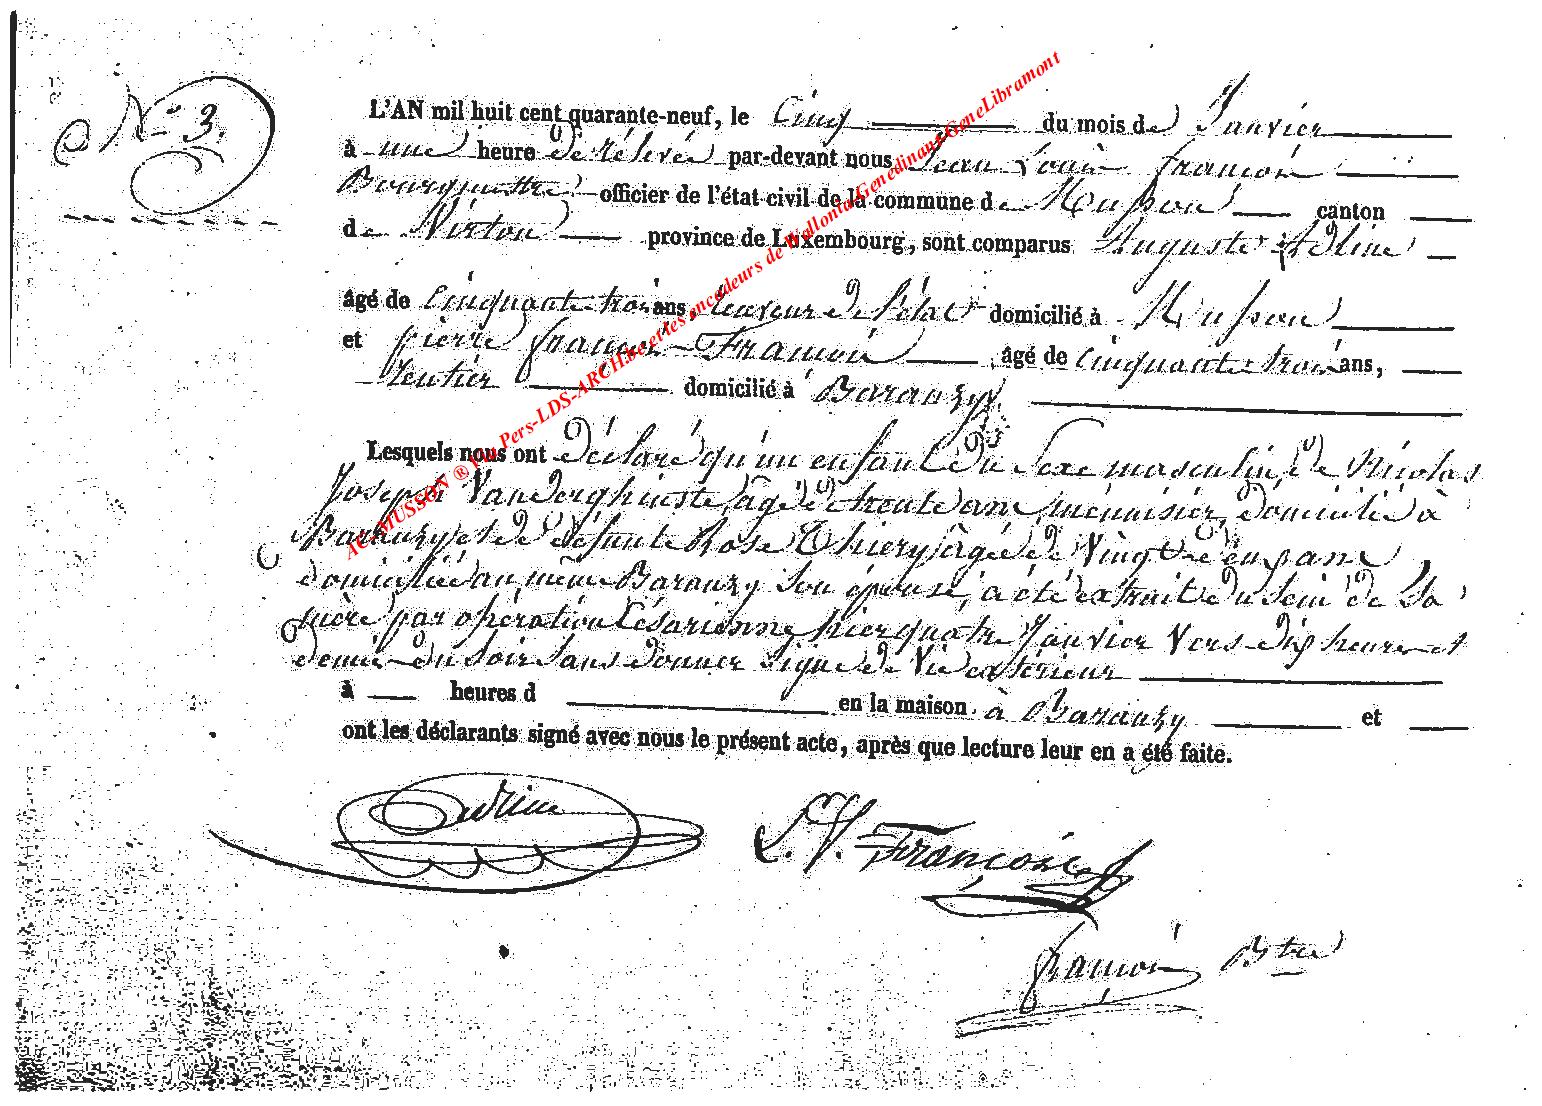 N.° 3.
L'AN mil huit cent quarante-neuf, le Cinq du mois de Janvier
à une heure de rélévée par-devant nous Jean Louis François
Bourgmettre officier de l'état civil de la commune de Musson canton
de Virton province de Luxembourg, sont comparus Auguste Adline
âgé de Cinquante trois ans domicilié à Musson
et pierre françois François âgé de Cinquante trois ans,
Rentier domicilié à Baranzy
Lesquels nous ont déclaré qu'un enfant du Sexe masculin, de Nicolas
Joseph Vanderghinste, âgé de trente ans, menuisier, domicilié à
Baranzy et de défunte Rose Thiery âgée de Vingt
domiciliée au même Baranzy Son épouse, a été extrait du Sein de Sa
mère par opération Césarienne hier quatre Janvier Vers dix heures et
demie du Soir Sans donner Signe de Vie extérieur
à heures d en la maison à Baranzy et
ont les déclarants signé avec nous le présent acte, après que lecture leur en a été faite.
Adline
François
françois Btre
AC MUSSON ® Via Pers-LDS-ARCH.be et les encodeurs de Wallonia Genedinant GeneLibramont